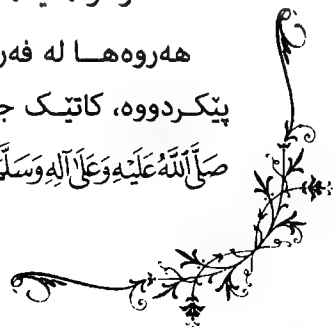 هەروەهـا لە فەر
پێکـردووە، کاتێـک جـ
صَلَّى ٱللَّهُ عَلَيْهِ وَعَلَىٰ آلِهِ وَسَلَّمَ